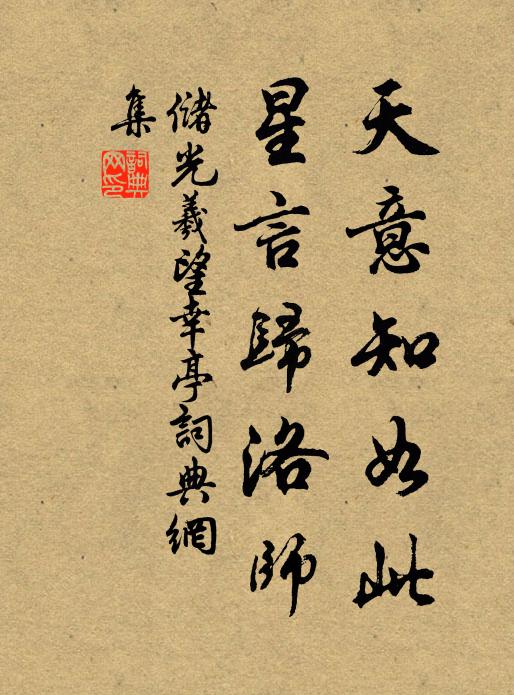 天意知如此
星言歸洛師
儲光羲望幸亭詞典網
集
詞典
网印